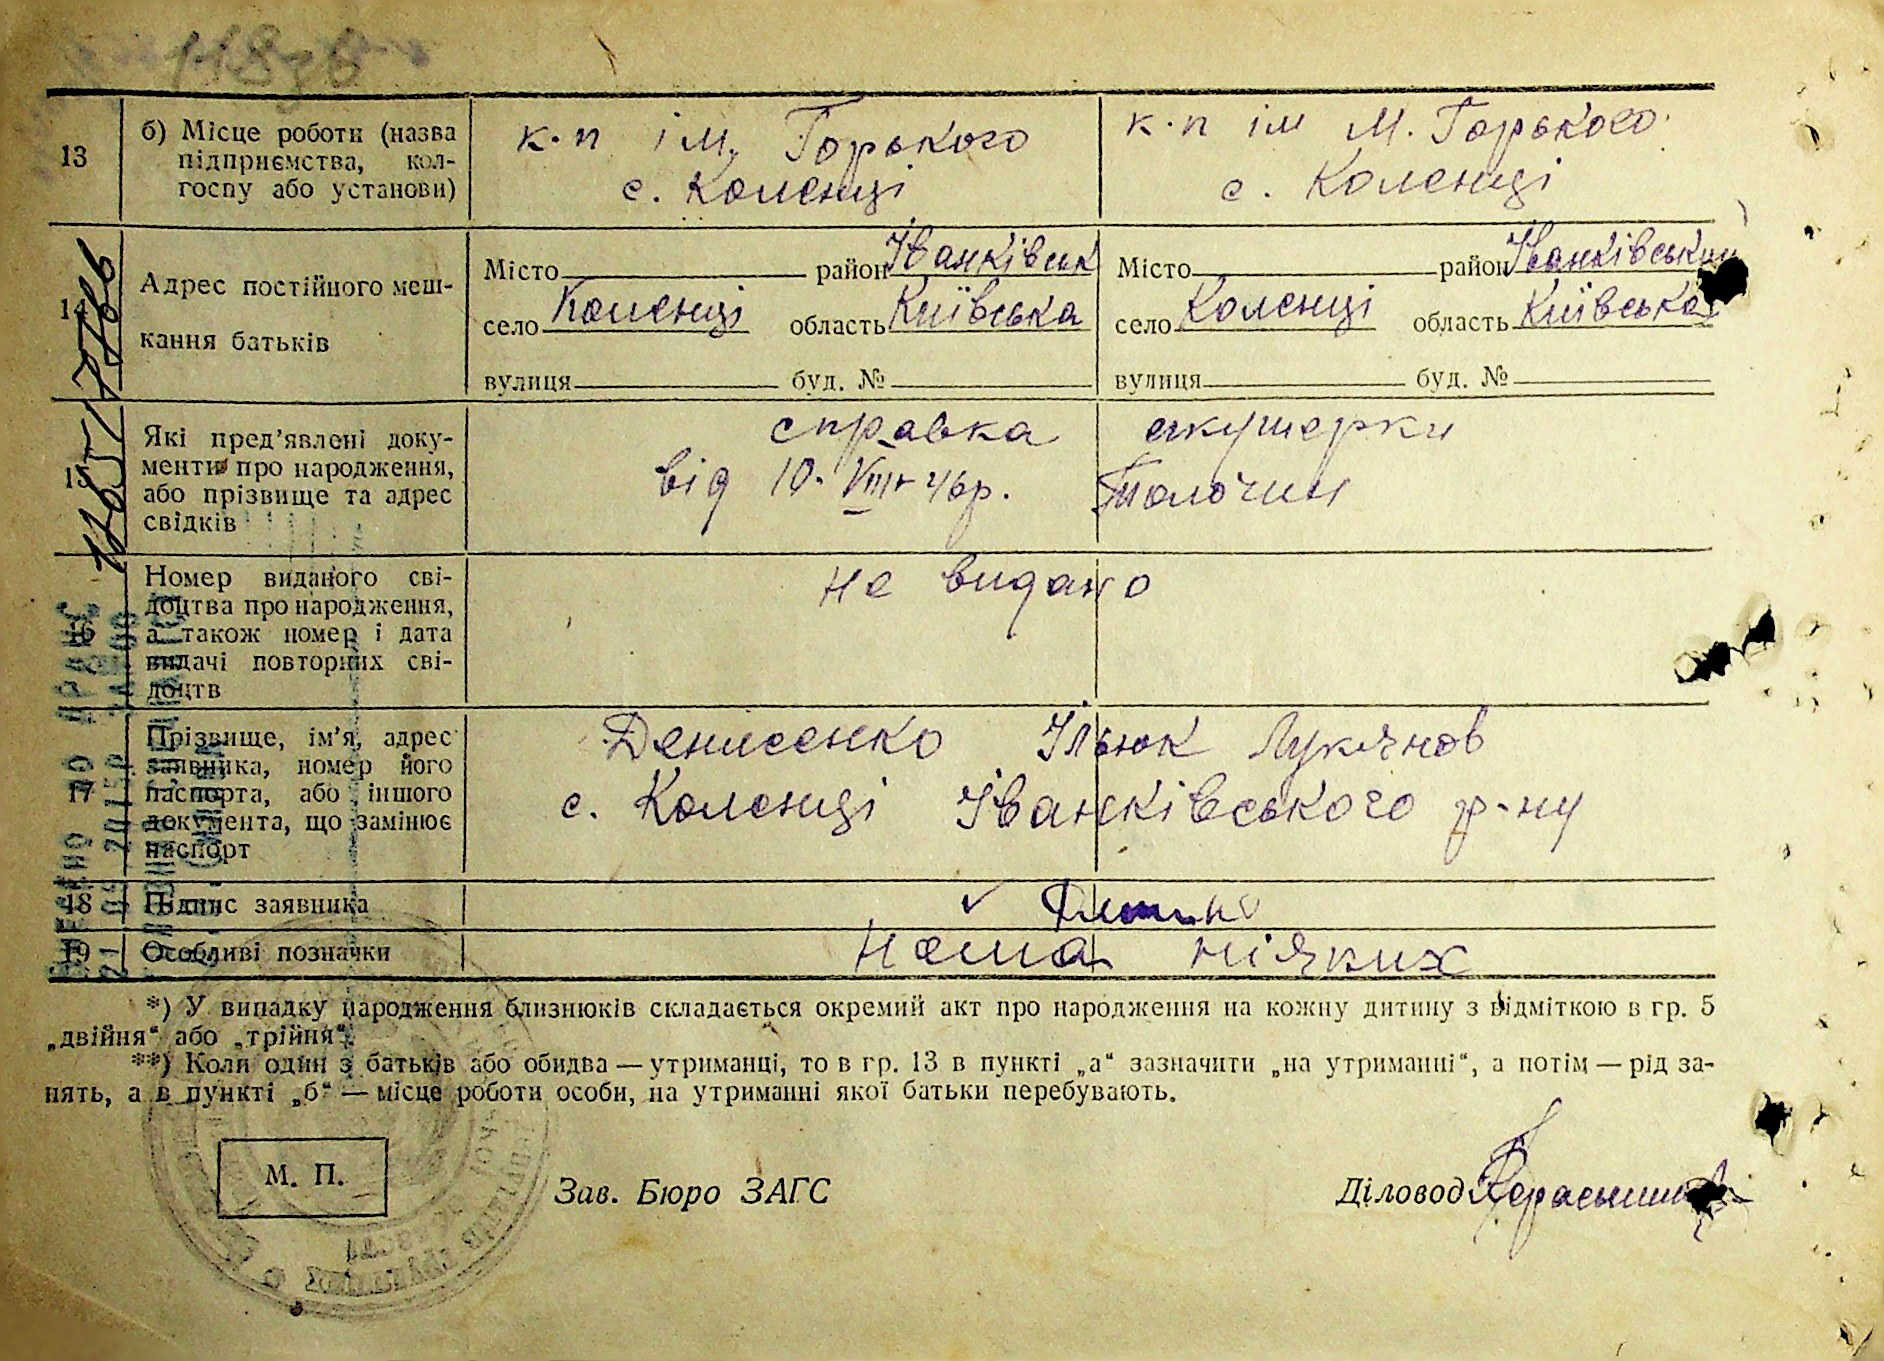 13
б) Місце роботи (назва
підприємства, кол-
госпу або установи)
к.п ім. Горького
с. Коленці
к.п ім М. Горького
с. Коленці
14
Адрес постійного меш-
кання батьків
Місто район Іванківськ
село Коленці область Київська
вулиця буд. №
Місто район Іванківський
село Коленці область Київська
вулиця буд. №
15
Які пред’явлені доку-
менти про народження,
або прізвище та адрес
свідків
справка акушерки
від 10. VIII 46р. Толочин
16
Номер виданого сві-
доцтва про народження,
а також номер і дата
видачі повторних сві-
доцтв
не видано
17
Прізвище, ім’я, адрес
заявника, номер його
паспорта, або іншого
документа, що замінює
паспорт
Денисенко Ількж Лукянов
с. Коленці Іванківського р-ну
18
Підпис заявника
19
Особливі позначки
нема ніяких
*) У випадку народження близнюків складається окремий акт про народження на кожну дитину з відміткою в гр. 5
„двійня“ або „трійня“.
**) Коли один з батьків або обидва — утриманці, то в гр. 13 в пункті „а“ зазначити „на утриманні“, а потім — рід за-
нять, а в пункті „б“ — місце роботи особи, на утриманні якої батьки перебувають.
М. П.
Зав. Бюро ЗАГС
Діловод